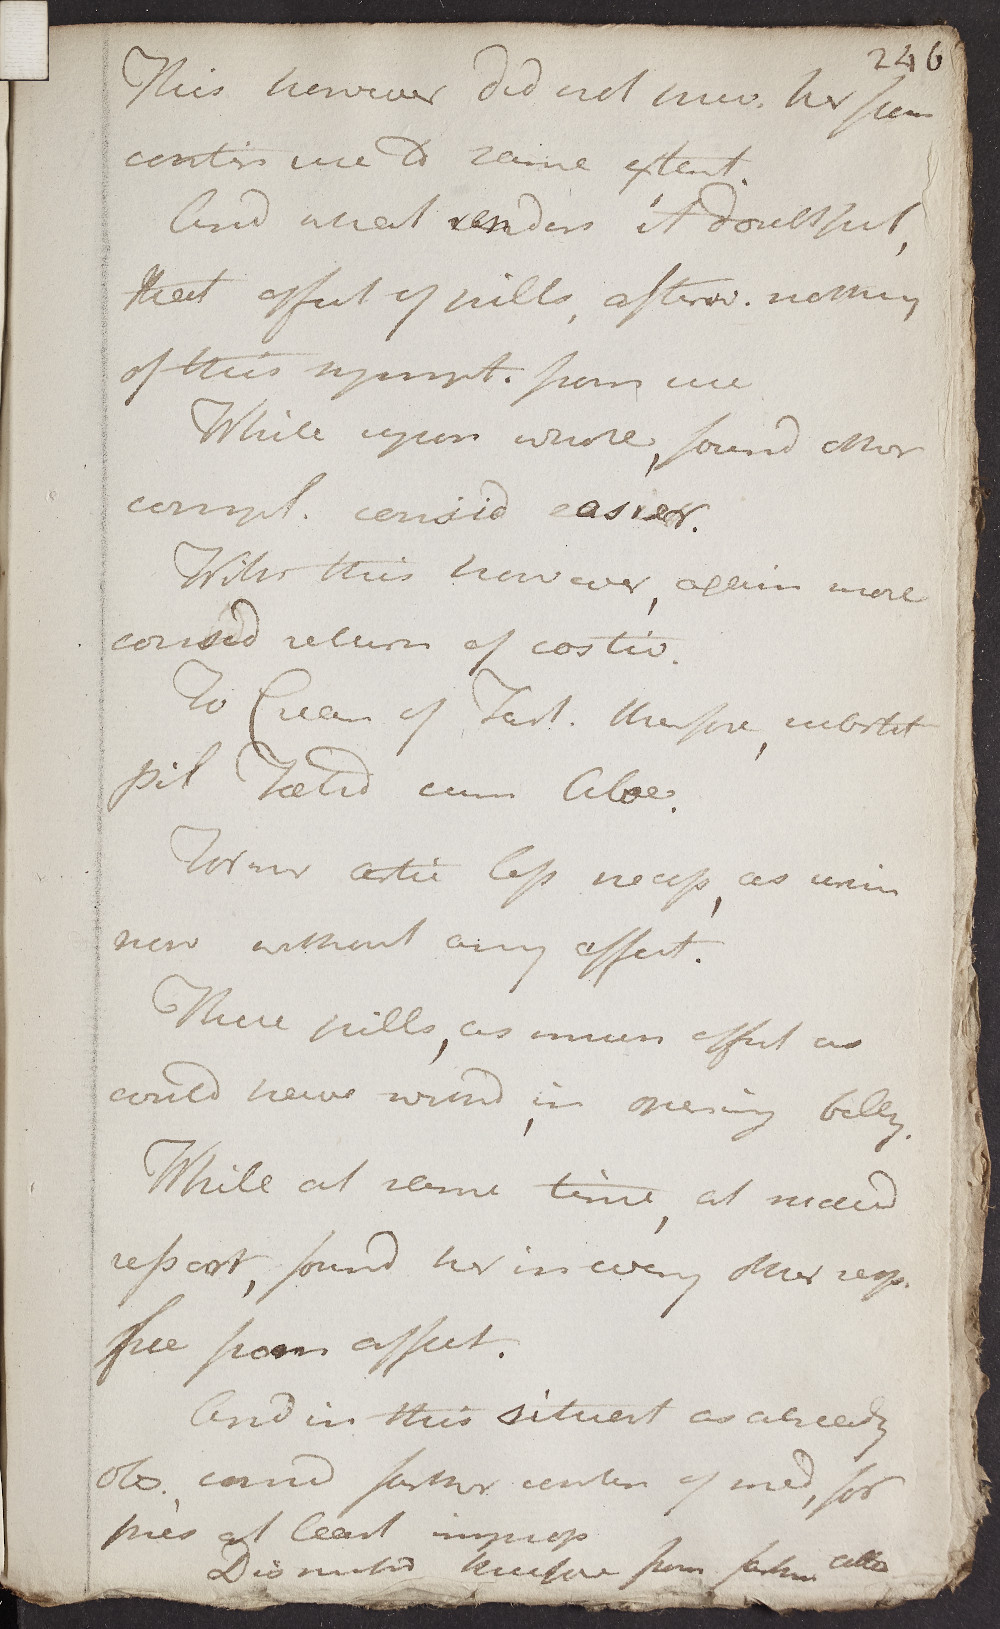 246
This however did not inev. her from
continue to same extent.
And what renders it doubtful,
that effect of pills, afterw. nothing
of this sympt. from use
While upon whole, found other
compl. consid easier.
With this however, again more
consid return of costiv.
To Cream of Tart. therefore, substit
pil Foetid cum Aloe.
Former artic less necess, as urin
now without any affect.
These pills, as much effect as
could have wished, in opening belly.
While at same time, at
report, found her in every other resp.
free from affect.
And in this situat as already
obs., contin of med, for
pres at least improp
Dismissed therefore from farther atten